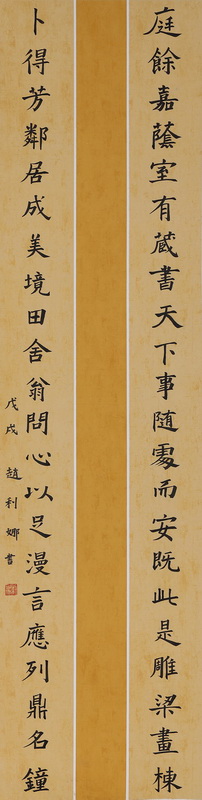 庭餘嘉蔭室有藏書天下事随處而安既此是雕梁畫棟
卜得芳鄰居成美境田舍翁問心以足漫言應列鼎名鐘
戊戌 趙利娜書